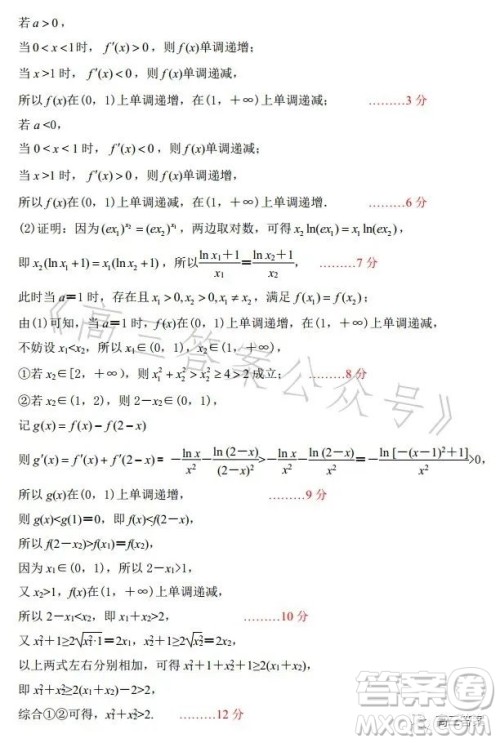 若 a > 0，
当 0 < x < 1时，f′(x) > 0，则 f(x)单调递增；
当 x >1 时，f′(x) < 0，则 f(x)单调递减，
所以 f(x)在(0，1)上单调递增，在(1，+∞)上单调递减； ………3 分
若 a <0，
当 0 < x < 1 时，f′(x) < 0，则 f(x)单调递减；
当 x >1 时，f′(x) > 0，则 f(x)单调递增，
所以 f(x)在(0，1)上单调递减，在(1，+∞)上单调递增. ………6 分
(2)证明：因为(ex₁)^(x₂) = (ex₂)^(x₁)，两边取对数，可得 x₂ ln(ex₁) = x₁ ln(ex₂)，
即 x₂(ln x₁ +1) = x₁(ln x₂ +1)，所以 (ln x₁+1)/x₁ = (ln x₂+1)/x₂， ………7 分
此时当 a＝1 时，存在且 x₁ > 0, x₂ > 0, x₁ ≠ x₂，满足 f(x₁) = f(x₂)；
由(1)可知，当 a＝1 时，f(x)在(0，1)上单调递增，在(1，+∞)上单调递减，
不妨设 x₁<x₂，所以 x₁∈(0，1)，x₂∈(1，+∞)，
①若 x₂∈[2，+∞)，则 x₁² + x₂² > x₂² ≥ 4 > 2 成立； ………8 分
②若 x₂∈(1，2)，则 2－x₂∈(0，1)，
记 g(x) = f(x) − f(2−x)
则 g′(x) = f′(x) + f′(2−x) = －ln x/x²－ln (2－x)/(2－x)²>－ln x/x²－ln (2－x)/x²＝－ln[－(x－1)²＋1]/x²>0，
所以 g(x)在(0，1)上单调递增， ………9 分
则 g(x)<g(1)＝0，即 f(x)<f(2－x)，
所以 f(2－x₁)>f(x₁)＝f(x₂)，
因为 x₁∈(0，1)，所以 2－x₁>1，
又 x₂>1，f(x)在(1，+∞)上单调递减，
所以 2－x₁<x₂，即 x₁＋x₂>2， ………10 分
又 x₁²＋1≥2√(x₁²·1)＝2x₁，x₂²＋1≥2√(x₂²·1)＝2x₂，
以上两式左右分别相加，可得 x₁²＋1＋x₂²＋1>2(x₁＋x₂)，
即 x₁²＋x₂²>2(x₁＋x₂)－2>2，
综合①②可得，x₁²＋x₂²>2. ………12 分
《高三答案公众号》
答案圈
MXQE.COM
高三答案